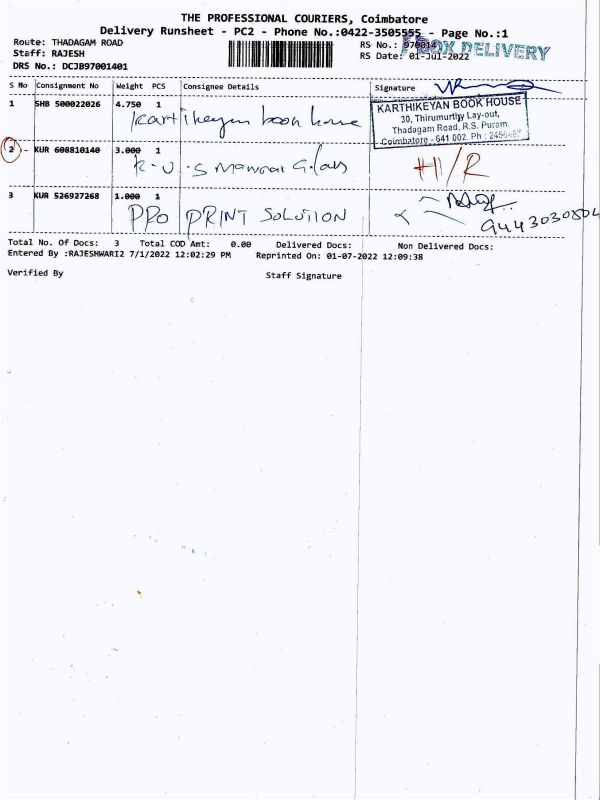 THE PROFESSIONAL COURIERS, Coimbatore
Delivery Runsheet - PC2 - Phone No.:0422-3505555 - Page No.:1
Route: THADAGAM ROAD
Staff: RAJESH
DRS No.: DCJB97001401
RS No.: 970014
BOX DELIVERY
RS Date: 01-Jul-2022
S No Consignment No Weight PCS Consignee Details Signature
1 SHB 500022026 4.750 1
Kartikeyan book house
KARTHIKEYAN BOOK HOUSE
30, Thirumurthy Lay-out,
Thadagam Road, R.S. Puram,
Coimbatore - 641 002. Ph :
2 - KUR 608810140 3.000 1
H/R
3 KUR 526927268 1.000 1
PPO PRINT SOLUTION
9443030504
Total No. Of Docs: 3 Total COD Amt: 0.00 Delivered Docs: Non Delivered Docs:
Entered By :RAJESHWARI2 7/1/2022 12:02:29 PM Reprinted On: 01-07-2022 12:09:38
Verified By Staff Signature